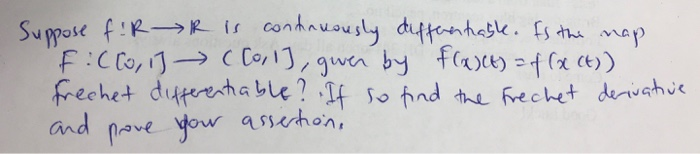 Suppose f:R→R is continuously differentiable. Is the map
F:C[0,1]→C[0,1], given by f(x)(t)=f(x(t))
frechet differentiable? If so find the Frechet derivative
and prove your assertion.